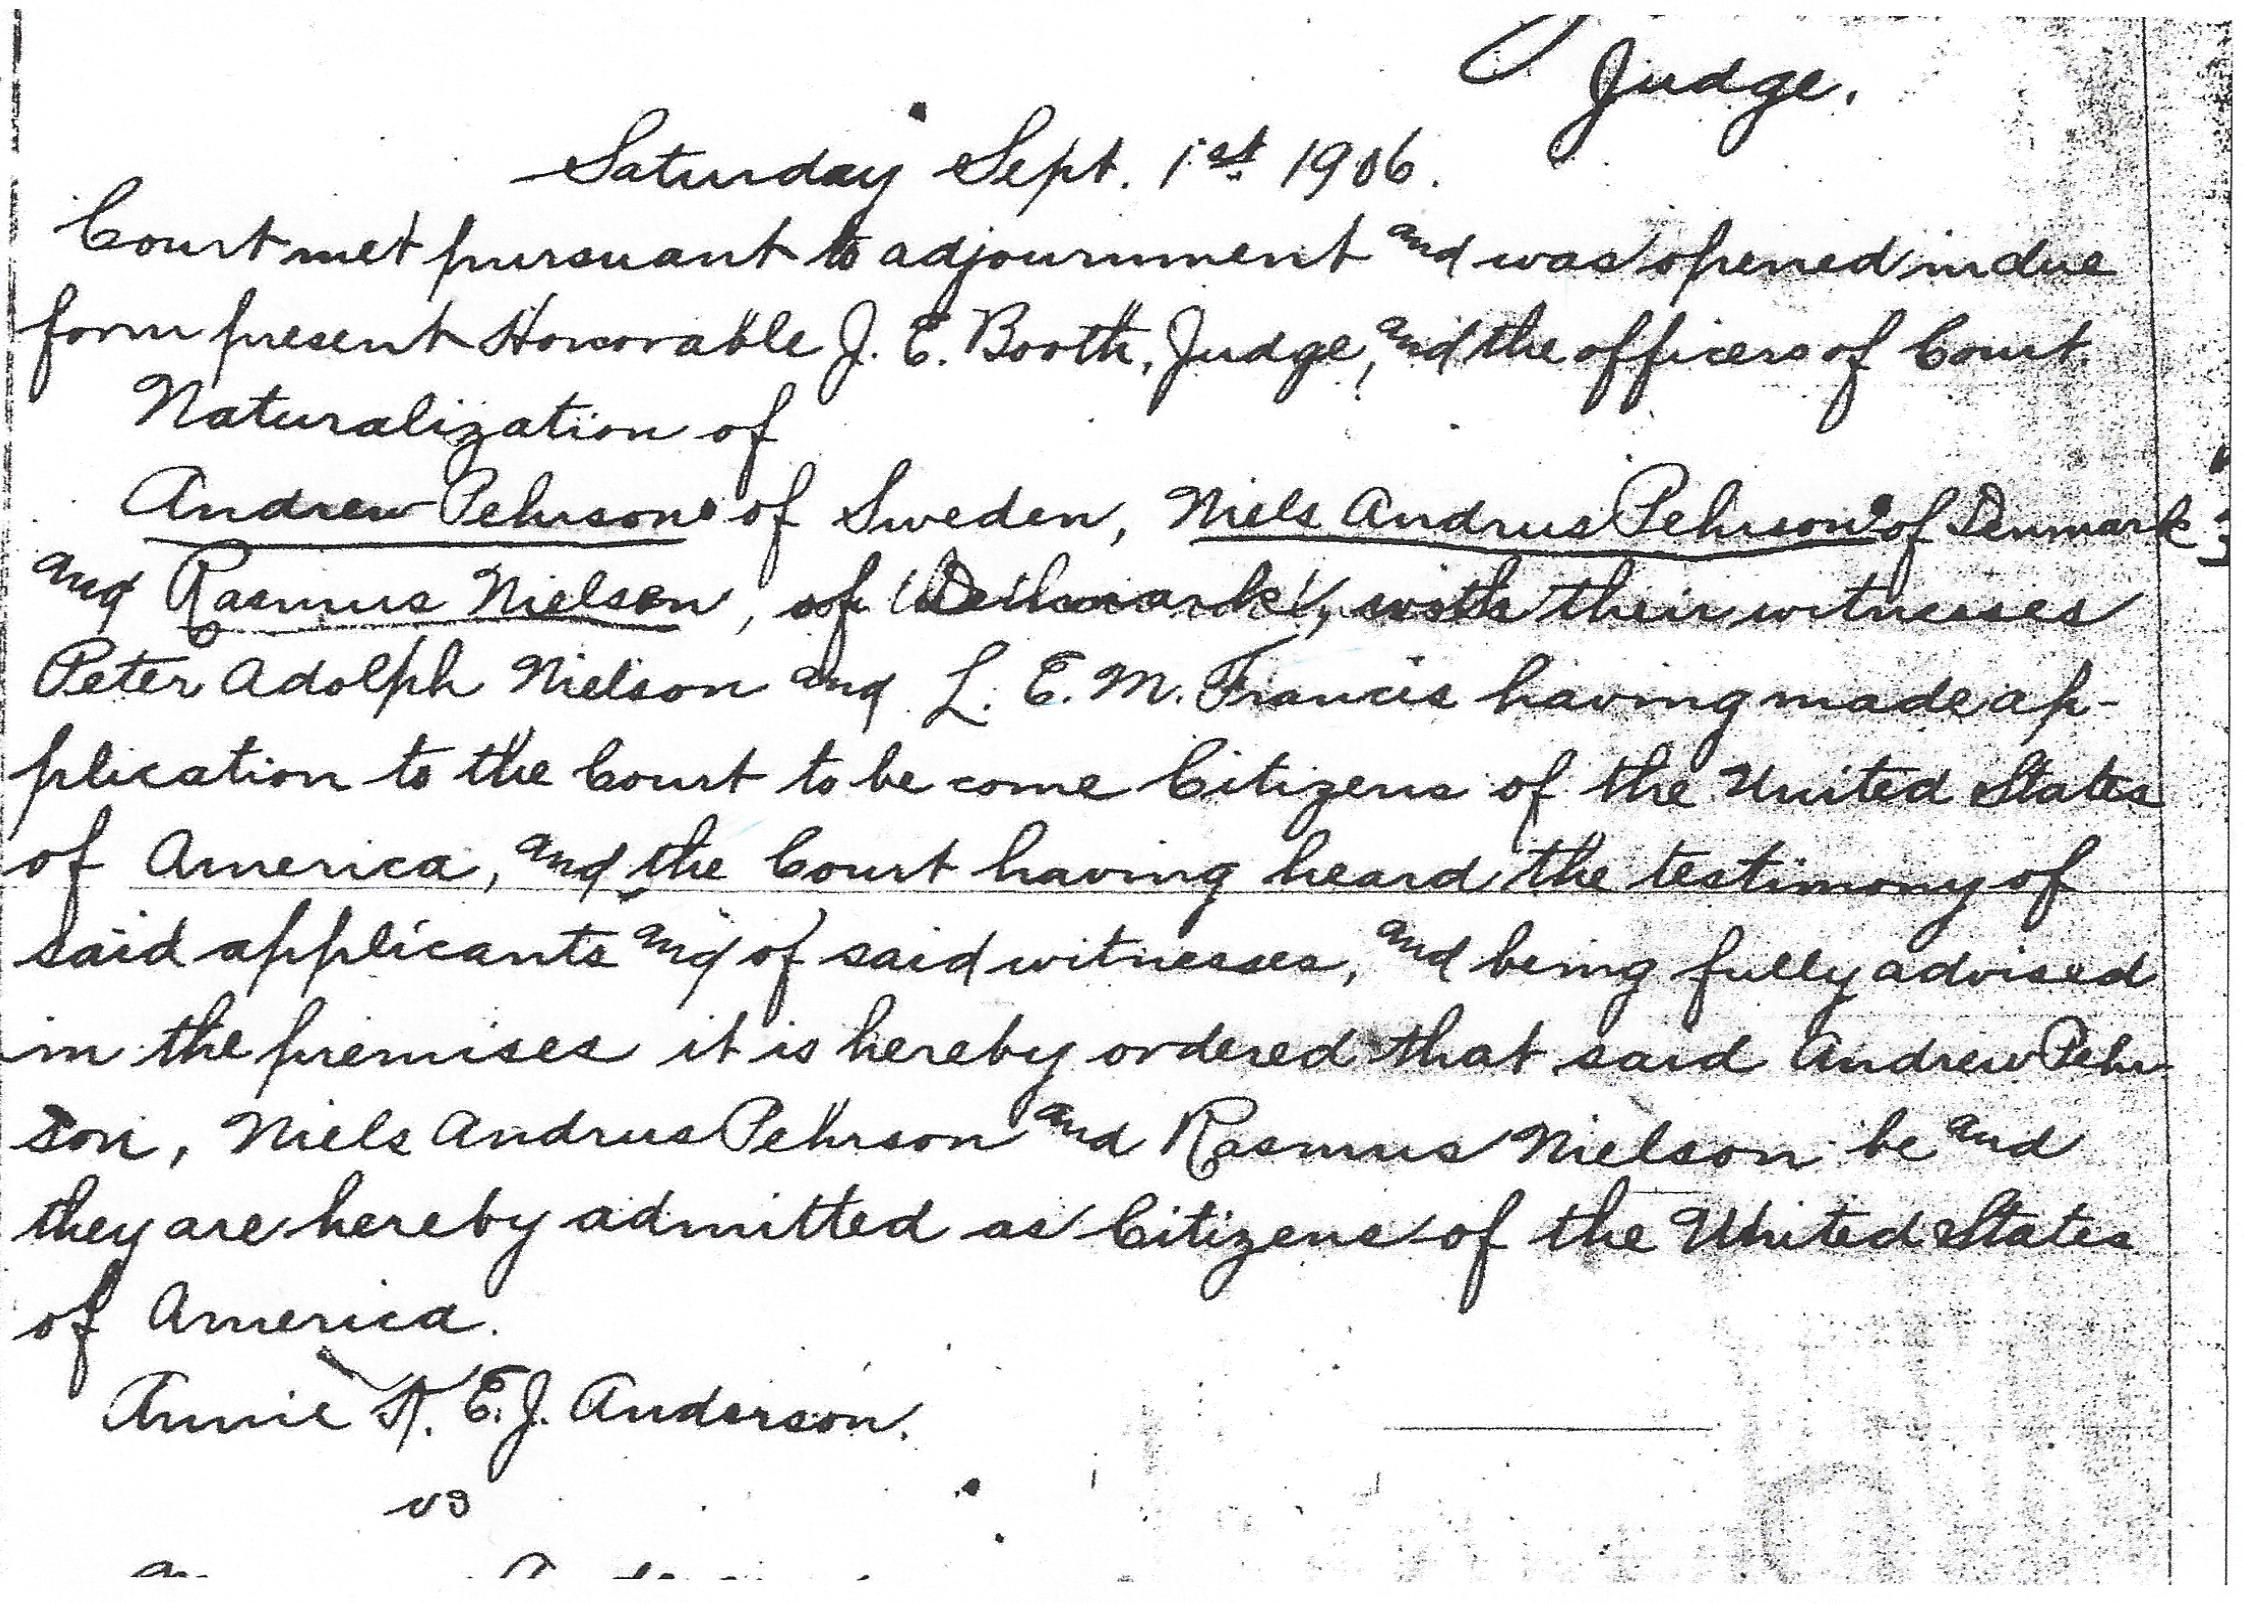 Judge.
Saturday Sept. 1st 1906.
Court met pursuant to adjournment and was opened in due
form present Honorable J. E. Booth, Judge, and the officers of Court.
Naturalization of
Andrew Pehrson of Sweden, Niels Andrus Pehrson of Denmark
and Rasmus Nielsen, of Denmark, with their witnesses
Peter Adolph Nielson and L. E. M. Francis having made ap-
plication to the Court to be come Citizens of the United States
of America, and the Court having heard the testimony of
said applicants and of said witnesses, and being fully advised
in the premises it is hereby ordered that said Andrew Pehr-
son, Niels Andrus Pehrson and Rasmus Nielson be and
they are hereby admitted as Citizens of the United States
of America.
Annie K. E. J. Anderson.
vs